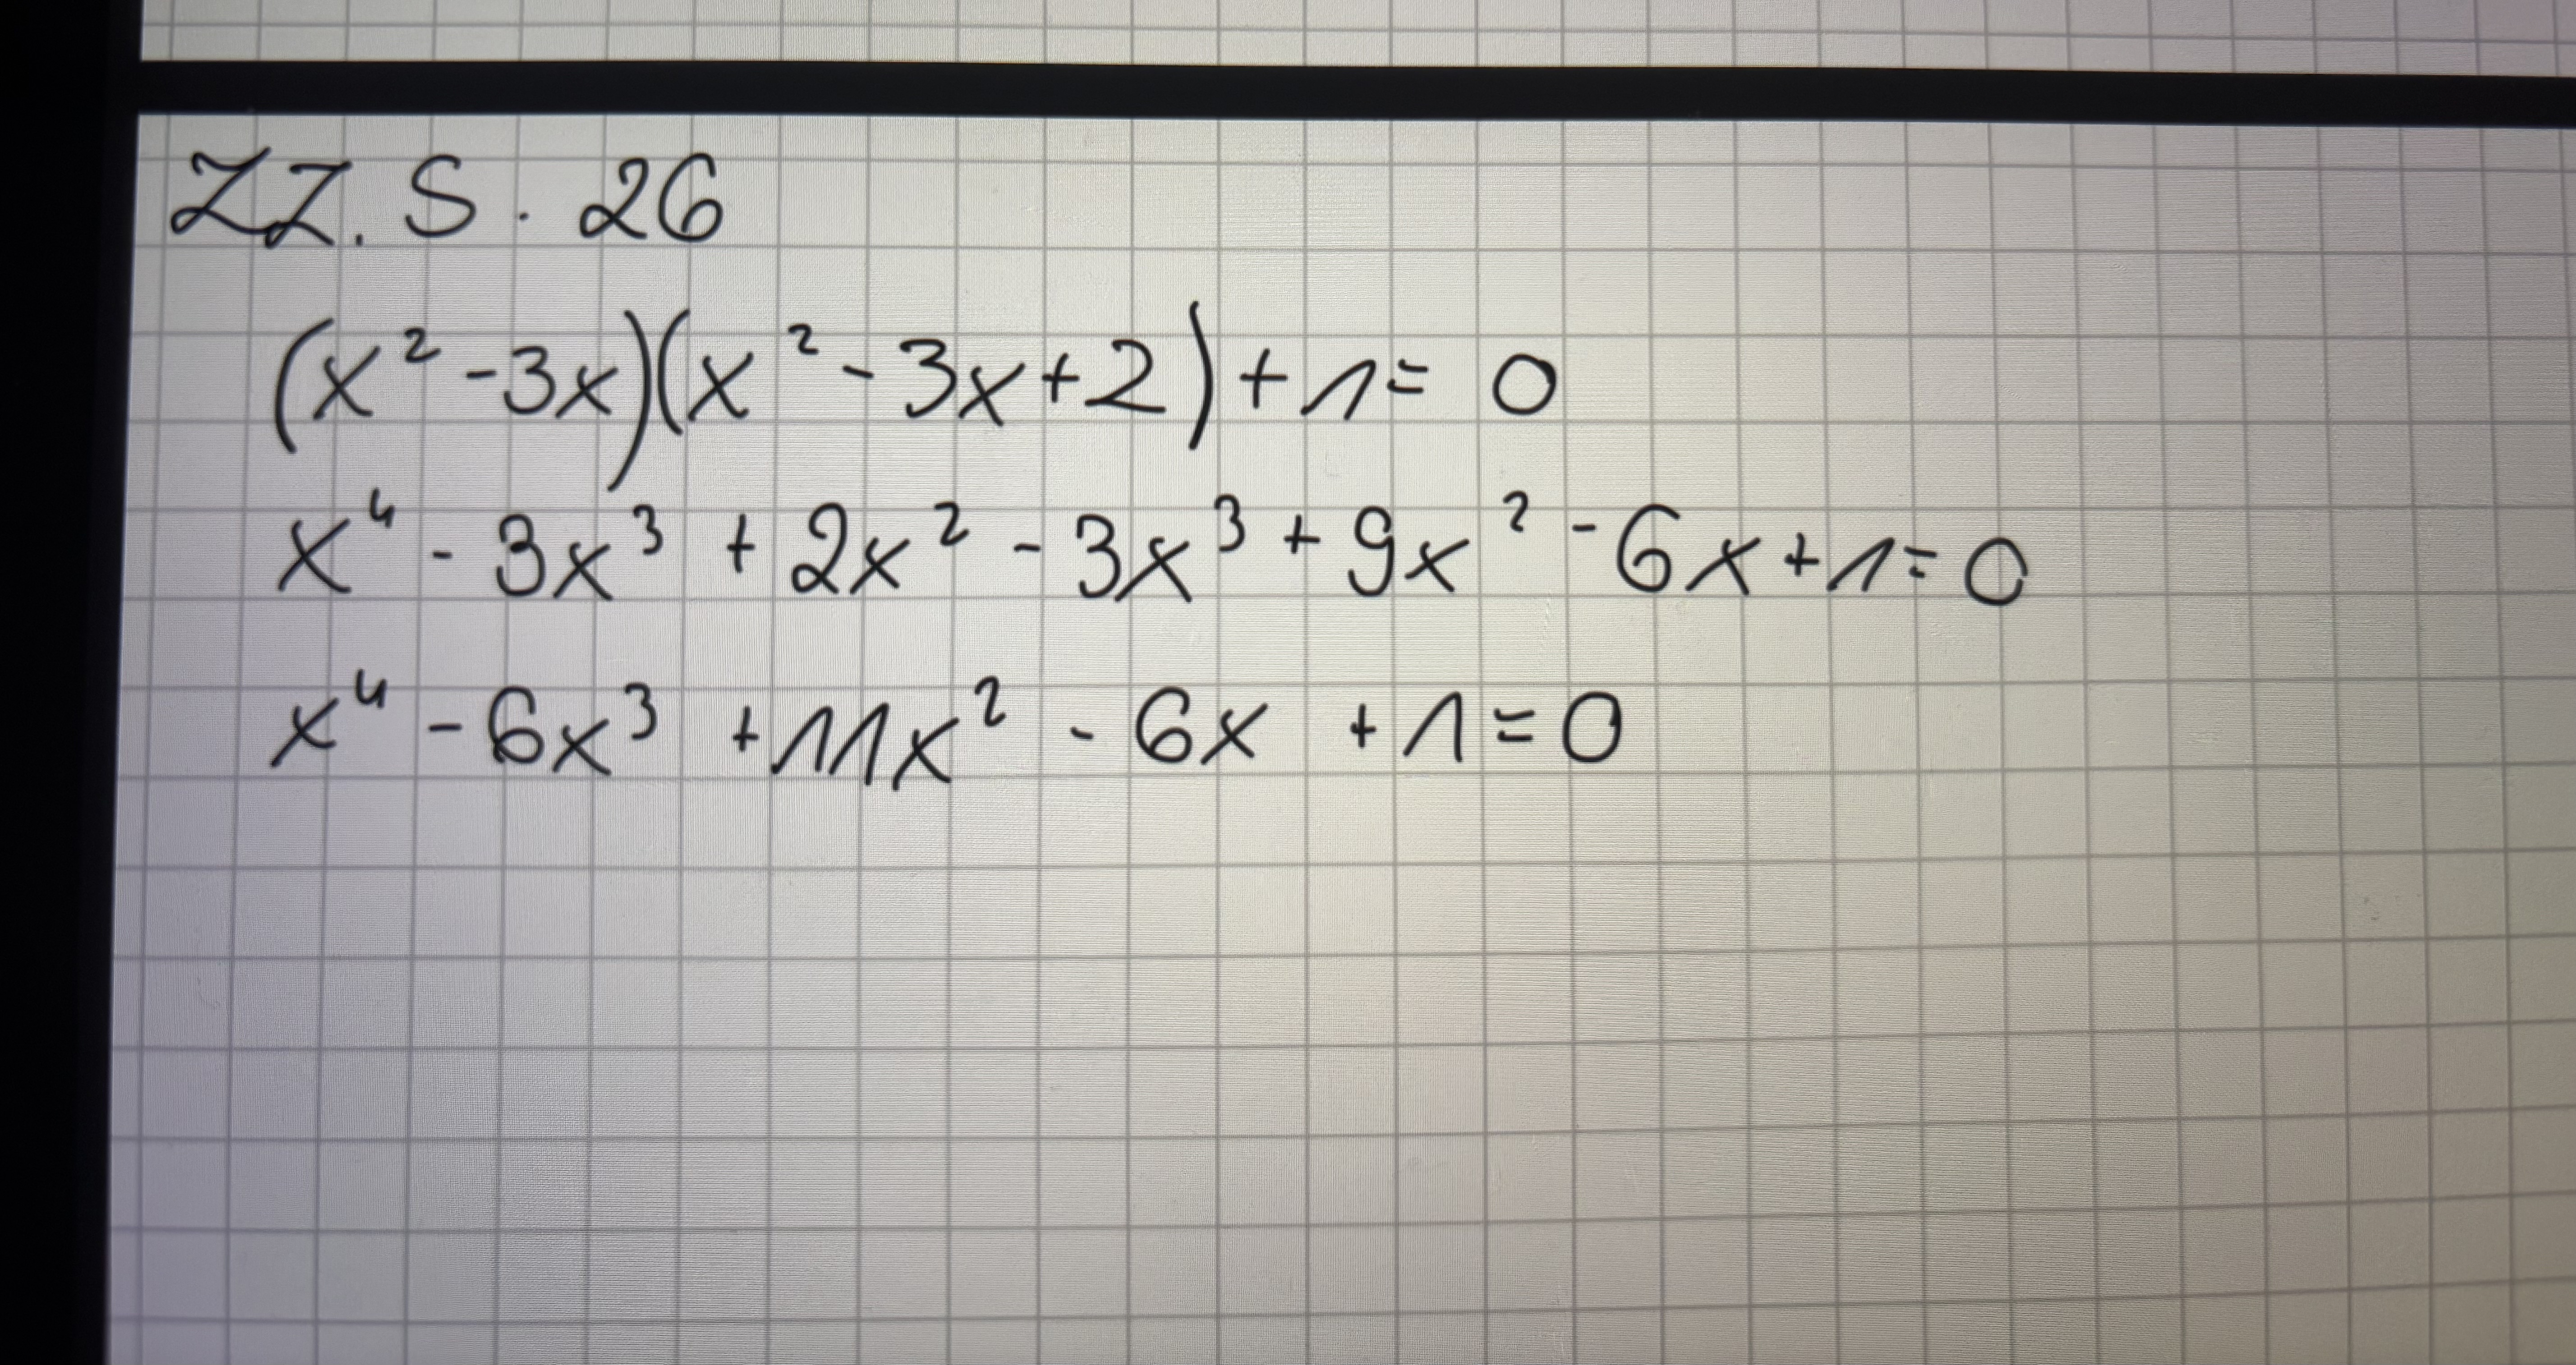 ZZ. S. 26
(x² - 3x)(x² - 3x + 2) + 1 = 0
x⁴ - 3x³ + 2x² - 3x³ + 9x² - 6x + 1 = 0
x⁴ - 6x³ + 11x² - 6x + 1 = 0